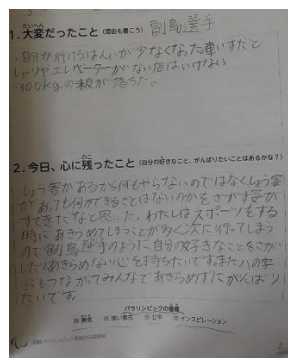 1.大変だったこと(理由も書こう) 副島選手
・自分が行けるはんいが少なくなった車いすだと
エレベーターがない店はいけない
・300kgの鉄が落ちた。
2.今日、心に残ったこと(自分の好きなこと、がんばりたいことはあるかな?)
しょう害があるから何もやらないのではなくしょう害
があっても何ができることはないのかをさがす姿が
すてきだなと思った。わたしはスポーツをする
時にあきらめてしまうことが多く次に行ってしまう
ので副島選手のように自分の好きなことをさが
したりあきらめない心をもちたいです。また
にもつながってみんなであきらめずにがんばり
たいです。
パラリンピックの価値
勇気 強い意志 公平 インスピレーション